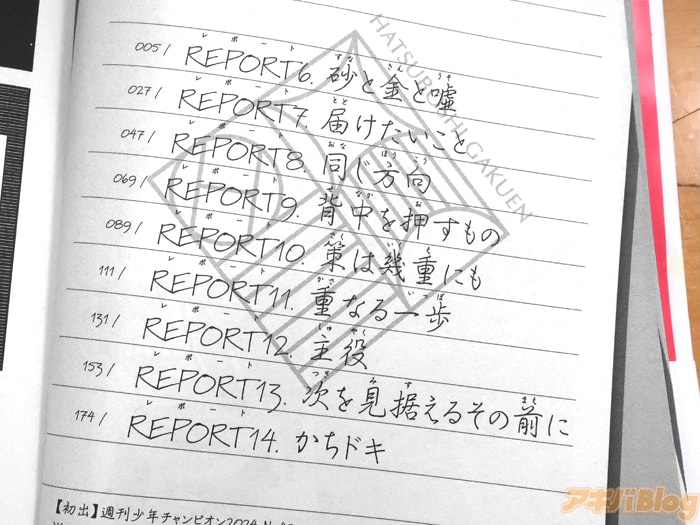 HATSUBOSHI GAKUEN
005 / REPORT6. 砂と金と嘘
027 / REPORT7. 届けたいこと
047 / REPORT8. 同じ方向
069 / REPORT9. 背中を押すもの
089 / REPORT10. 策は幾重にも
111 / REPORT11. 重なる一歩
131 / REPORT12. 主役
153 / REPORT13. 次を見据えるその前に
174 / REPORT14. かちドキ
【初出】週刊少年チャンピオン2024
アキバBlog